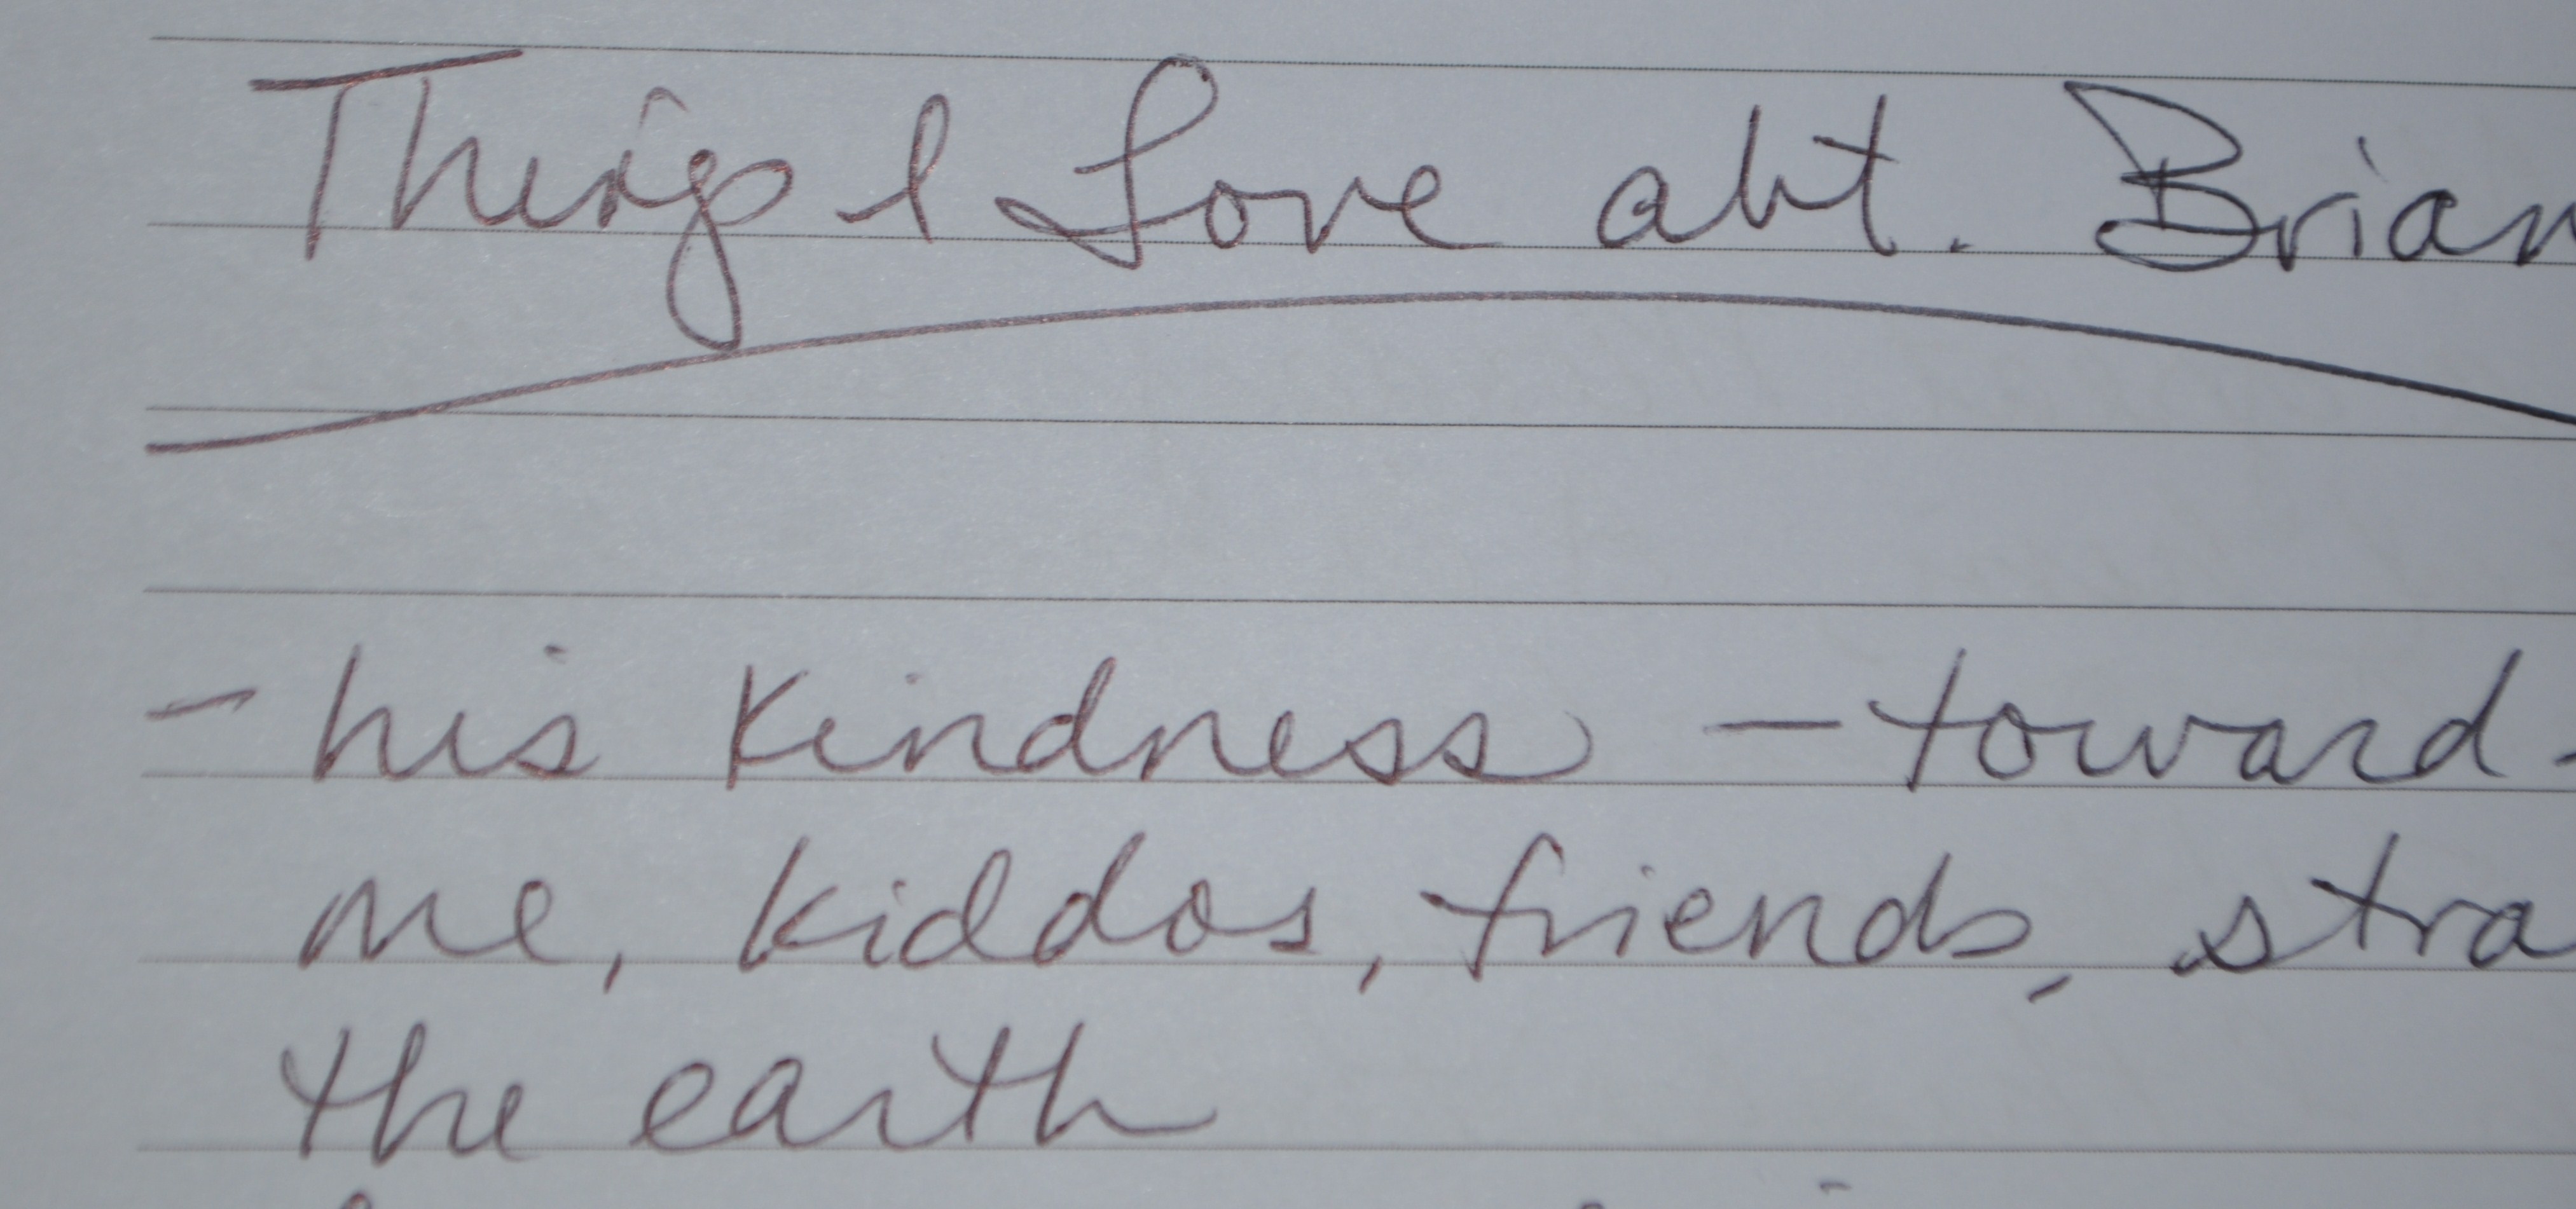 Things I Love abt. Brian
- his kindness - toward -
me, kiddos, friends, stra
the earth